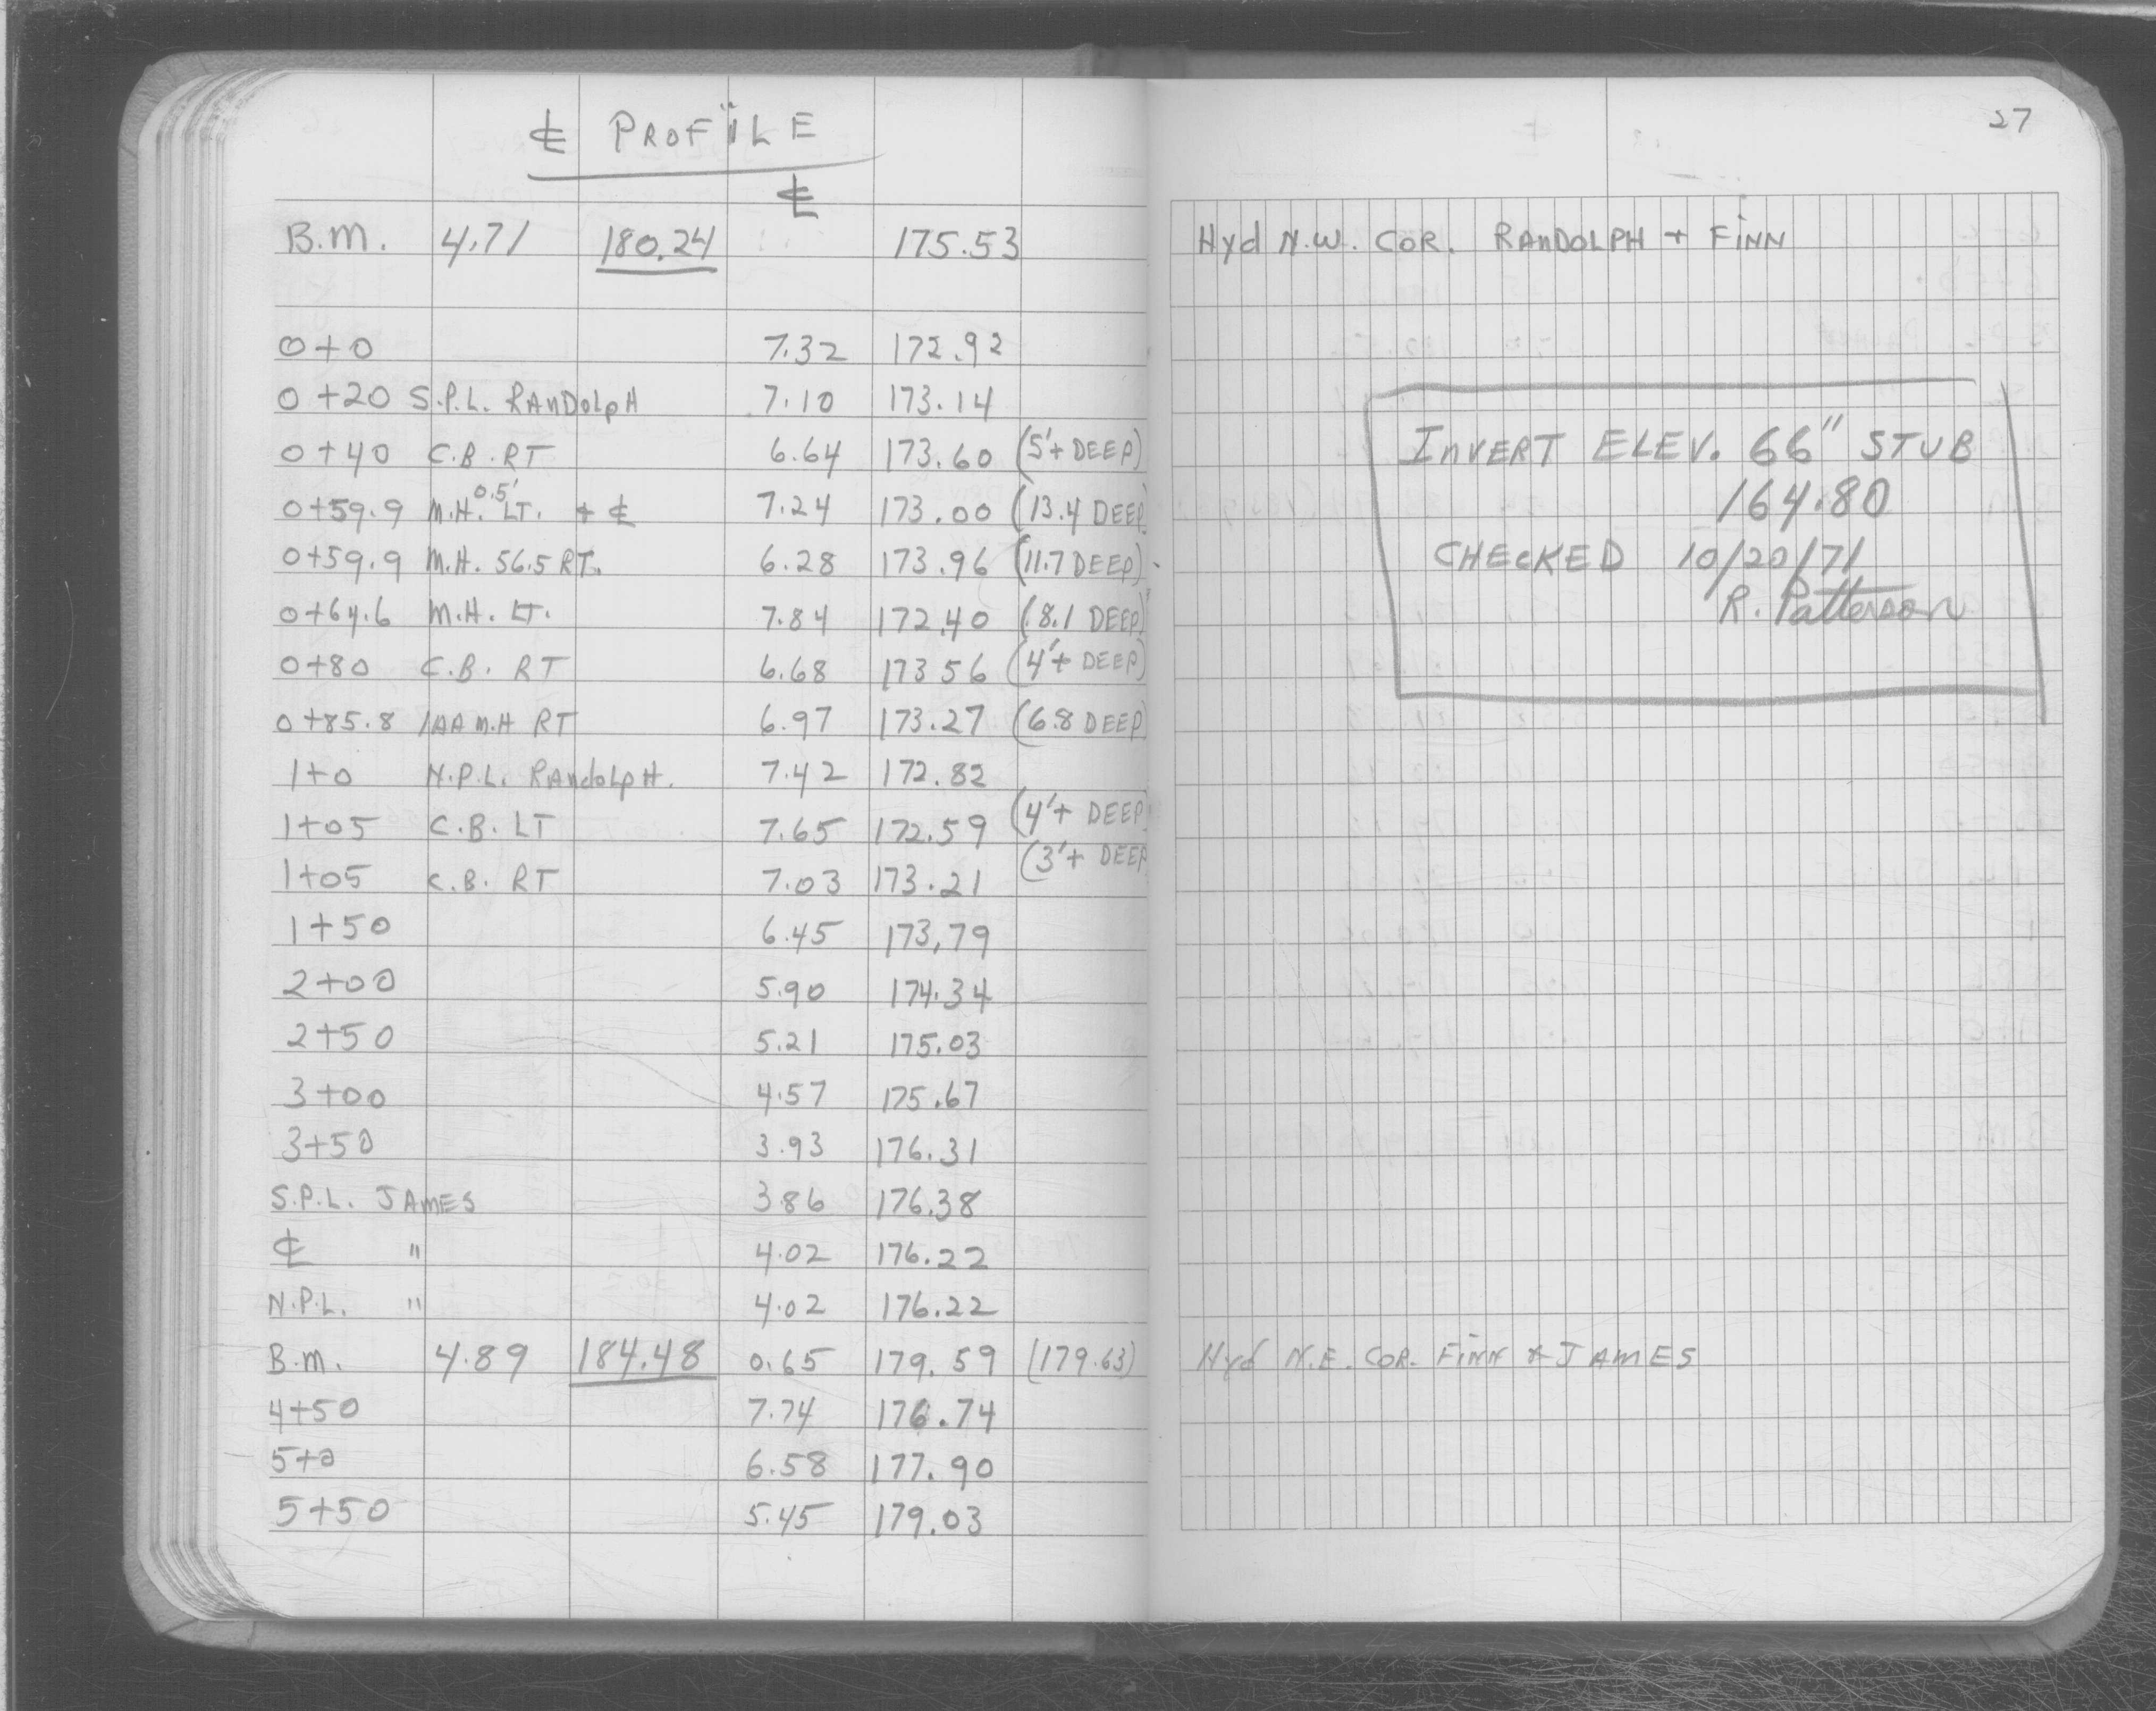 ℄ PROFILE
℄
B.M. 4.71 180.24 175.53
0+0 7.32 172.92
0+20 S.P.L. RANDOLPH 7.10 173.14
0+40 C.B. RT 6.64 173.60 (5'+ DEEP)
0+59.9 M.H. 0.5' LT. + ℄ 7.24 173.00 (13.4 DEEP)
0+59.9 M.H. 56.5 RT. 6.28 173.96 (11.7 DEEP)
0+64.6 M.H. LT. 7.84 172.40 (8.1 DEEP)
0+80 C.B. RT 6.68 173 56 (4'+ DEEP)
0+85.8 M.H RT 6.97 173.27 (6.8 DEEP)
1+0 N.P.L. RANDOLPH. 7.42 172.82
1+05 C.B. LT 7.65 172.59 (4'+ DEEP)
1+05 C.B. RT 7.03 173.21 (3'+ DEEP
1+50 6.45 173.79
2+00 5.90 174.34
2+50 5.21 175.03
3+00 4.57 175.67
3+50 3.93 176.31
S.P.L. JAMES 3.86 176.38
℄ " 4.02 176.22
N.P.L. " 4.02 176.22
B.M. 4.89 184.48 0.65 179.59 (179.63)
4+50 7.74 176.74
5+0 6.58 177.90
5+50 5.45 179.03
27
Hyd N.W. COR. RANDOLPH + FINN
INVERT ELEV. 66" STUB
164.80
CHECKED 10/20/71
R. Patterson
Hyd N.E. COR. FINN & JAMES